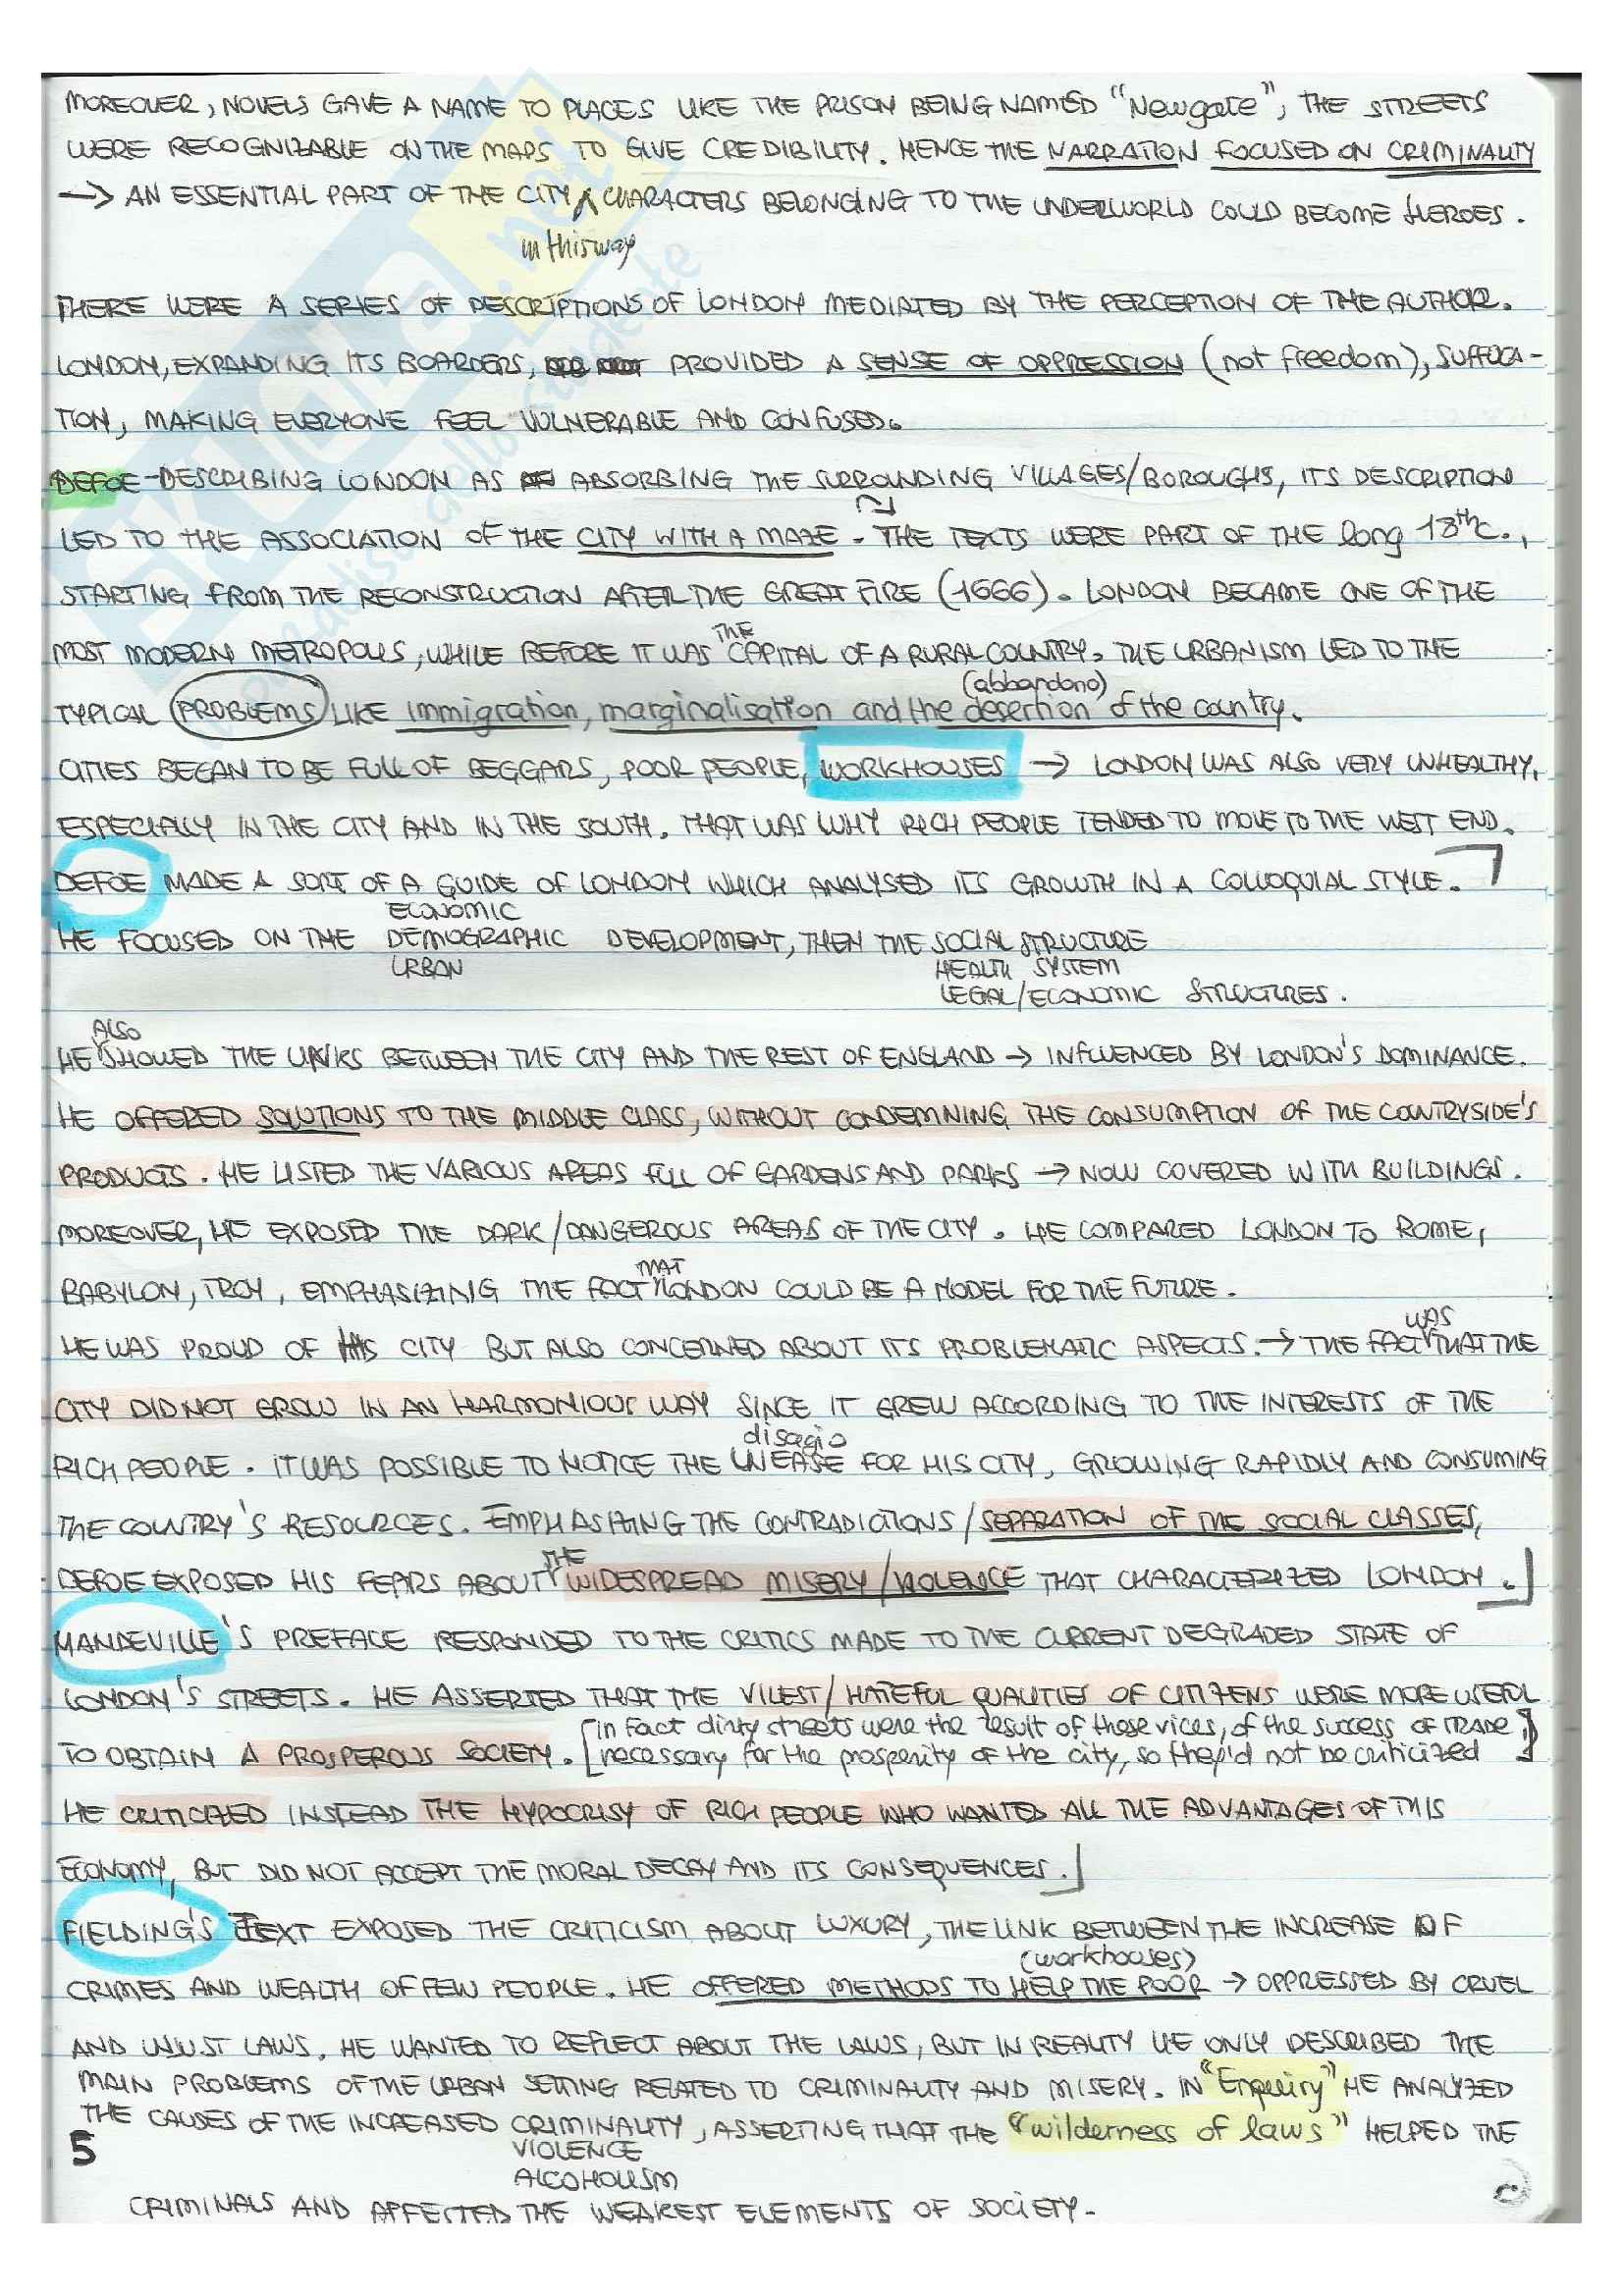 MOREOVER, NOVELS GAVE A NAME TO PLACES LIKE THE PRISON BEING NAMED "Newgate", THE STREETS
WERE RECOGNIZABLE ON THE MAPS TO GIVE CREDIBILITY. HENCE THE NARRATION FOCUSED ON CRIMINALITY
→ AN ESSENTIAL PART OF THE CITY, CHARACTERS BELONGING TO THE UNDERWORLD COULD BECOME HEROES.
in this way
THERE WERE A SERIES OF DESCRIPTIONS OF LONDON MEDIATED BY THE PERCEPTION OF THE AUTHOR.
LONDON, EXPANDING ITS BOARDERS, PROVIDED A SENSE OF OPPRESSION (not freedom), SUFFOCA-
TION, MAKING EVERYONE FEEL VULNERABLE AND CONFUSED.
DEFOE - DESCRIBING LONDON AS ABSORBING THE SURROUNDING VILLAGES/BOROUGHS, ITS DESCRIPTION
LED TO THE ASSOCIATION OF THE CITY WITH A MAZE. THE TEXTS WERE PART OF THE long 18th c.,
STARTING FROM THE RECONSTRUCTION AFTER THE GREAT FIRE (1666). LONDON BECAME ONE OF THE
THE
MOST MODERN METROPOLIS, WHILE BEFORE IT WAS CAPITAL OF A RURAL COUNTRY. THE URBANISM LED TO THE
(abbandono)
TYPICAL PROBLEMS LIKE immigration, marginalisation and the desertion of the country.
CITIES BEGAN TO BE FULL OF BEGGARS, POOR PEOPLE, WORKHOUSES → LONDON WAS ALSO VERY UNHEALTHY,
ESPECIALLY IN THE CITY AND IN THE SOUTH. THAT WAS WHY RICH PEOPLE TENDED TO MOVE TO THE WEST END.
DEFOE MADE A SORT OF A GUIDE OF LONDON WHICH ANALYSED ITS GROWTH IN A COLLOQUIAL STYLE.
ECONOMIC
HE FOCUSED ON THE DEMOGRAPHIC DEVELOPMENT, THEN THE SOCIAL STRUCTURE
URBAN HEALTH SYSTEM
LEGAL/ECONOMIC STRUCTURES.
ALSO
HE SHOWED THE LINKS BETWEEN THE CITY AND THE REST OF ENGLAND → INFLUENCED BY LONDON'S DOMINANCE.
HE OFFERED SOLUTIONS TO THE MIDDLE CLASS, WITHOUT CONDEMNING THE CONSUMPTION OF THE COUNTRYSIDE'S
PRODUCTS. HE LISTED THE VARIOUS AREAS FULL OF GARDENS AND PARKS → NOW COVERED WITH BUILDINGS.
MOREOVER, HE EXPOSED THE DARK/DANGEROUS AREAS OF THE CITY. HE COMPARED LONDON TO ROME,
THAT
BABYLON, TROY, EMPHASIZING THE FACT LONDON COULD BE A MODEL FOR THE FUTURE.
WAS
HE WAS PROUD OF HIS CITY BUT ALSO CONCERNED ABOUT ITS PROBLEMATIC ASPECTS. → THE FACT THAT THE
CITY DID NOT GROW IN AN HARMONIOUS WAY SINCE IT GREW ACCORDING TO THE INTERESTS OF THE
disagio
RICH PEOPLE. IT WAS POSSIBLE TO NOTICE THE UNEASE FOR HIS CITY, GROWING RAPIDLY AND CONSUMING
THE COUNTRY'S RESOURCES. EMPHASIZING THE CONTRADICTIONS/SEPARATION OF THE SOCIAL CLASSES,
THE
DEFOE EXPOSED HIS FEARS ABOUT WIDESPREAD MISERY/VIOLENCE THAT CHARACTERIZED LONDON.
MANDEVILLE'S PREFACE RESPONDED TO THE CRITICS MADE TO THE CURRENT DEGRADED STATE OF
LONDON'S STREETS. HE ASSERTED THAT THE VILEST/HATEFUL QUALITIES OF CITIZENS WERE MORE USEFUL
[in fact dirty streets were the result of these vices, of the success of trade,]
TO OBTAIN A PROSPEROUS SOCIETY. [necessary for the prosperity of the city, so they'd not be criticized]
HE CRITICIZED INSTEAD THE HYPOCRISY OF RICH PEOPLE WHO WANTED ALL THE ADVANTAGES OF THIS
ECONOMY, BUT DID NOT ACCEPT THE MORAL DECAY AND ITS CONSEQUENCES.
FIELDING'S TEXT EXPOSED THE CRITICISM ABOUT LUXURY, THE LINK BETWEEN THE INCREASE OF
(workhouses)
CRIMES AND WEALTH OF FEW PEOPLE. HE OFFERED METHODS TO HELP THE POOR → OPPRESSED BY CRUEL
AND UNJUST LAWS. HE WANTED TO REFLECT ABOUT THE LAWS, BUT IN REALITY HE ONLY DESCRIBED THE
MAIN PROBLEMS OF THE URBAN SETTING RELATED TO CRIMINALITY AND MISERY. IN "Enquiry" HE ANALYZED
THE CAUSES OF THE INCREASED CRIMINALITY, ASSERTING THAT THE "wilderness of laws" HELPED THE
5 VIOLENCE
ALCOHOLISM
CRIMINALS AND AFFECTED THE WEAKEST ELEMENTS OF SOCIETY.